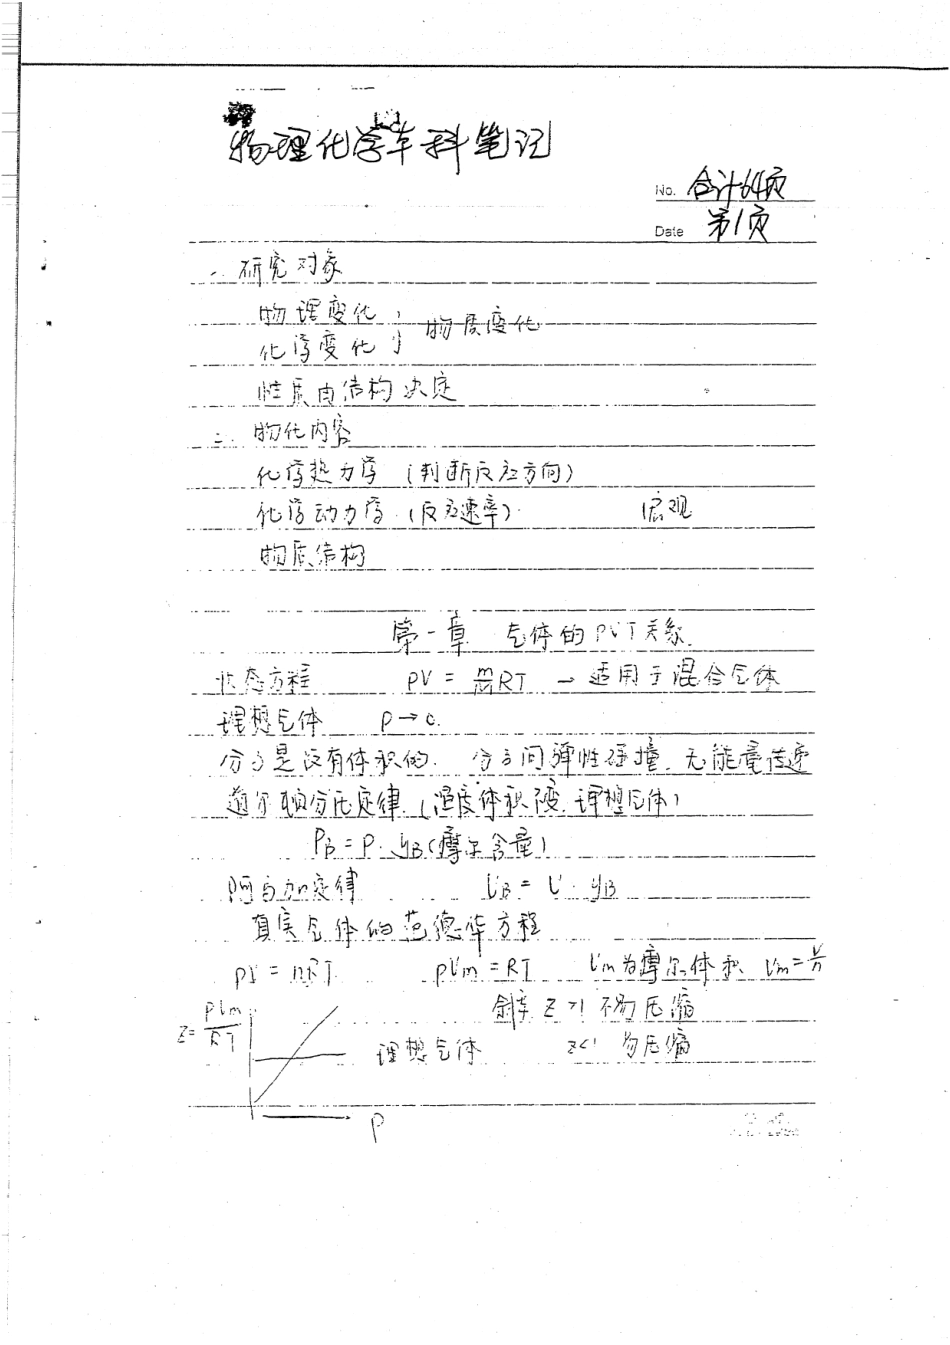 物理化学本科笔记
No. 合计64页
Date 第1页
一. 研究对象
物理变化
化学变化 } 物质变化
性质由结构决定
二. 物化内容
化学热力学 (判断反应方向)
化学动力学 (反应速率) 宏观
物质结构
第一章 气体的PVT关系
状态方程 PV = m/M RT → 适用于混合气体
理想气体 P→0.
分子是没有体积的. 分子间弹性碰撞, 无能量传递
道尔顿分压定律 (温度体积不变, 理想气体)
PB = P·yB (摩尔含量)
阿马加定律 VB = V·yB
真实气体的范德华方程
pV = nRT pVm = RT Vm为摩尔体积 Vm = V/n
Z = pVm/RT 斜率 Z>1 不易压缩
理想气体 Z<1 易压缩
P